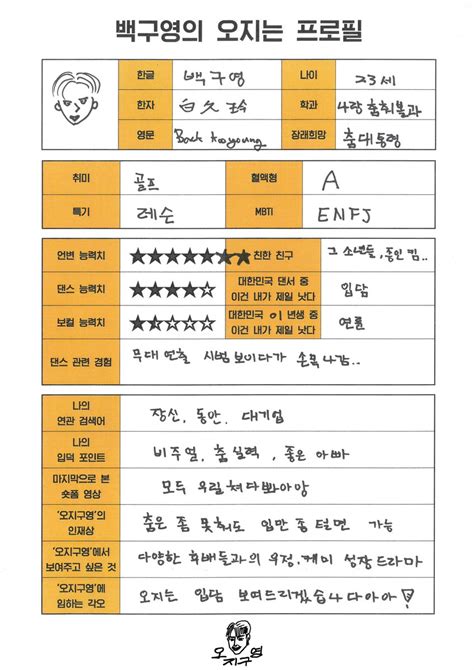 백구영의 오지는 프로필
한글 백구영 나이 23세
한자 白久玲 학과 나랑춤춰볼과
영문 Back kooyoung 장래희망 춤대통령
취미 골프 혈액형 A
특기 레슨 MBTI ENFJ
언변 능력치 ★★★★★★★ 친한 친구 그 소년들, 종인 킴..
댄스 능력치 ★★★★☆ 대한민국 댄서 중 이건 내가 제일 낫다 입담
보컬 능력치 ★☆☆☆☆ 대한민국 01년생 중 이건 내가 제일 낫다 연륜
댄스 관련 경험 무대 연출 시범 보이다가 손목 나감..
나의 연관 검색어 장신, 동안, 대기업
나의 입덕 포인트 비주얼, 춤실력, 좋은 아빠
마지막으로 본 숏폼 영상 모두 우릴 쳐다봐아앙
'오지구영'의 인재상 춤은 좀 못춰도 입만 좀 털면 가능
'오지구영'에서 보여주고 싶은 것 다양한 후배들과의 우정, 케미 성장드라마
'오지구영'에 임하는 각오 오지는 입담 보여드리겠습니다아아!
오지구영